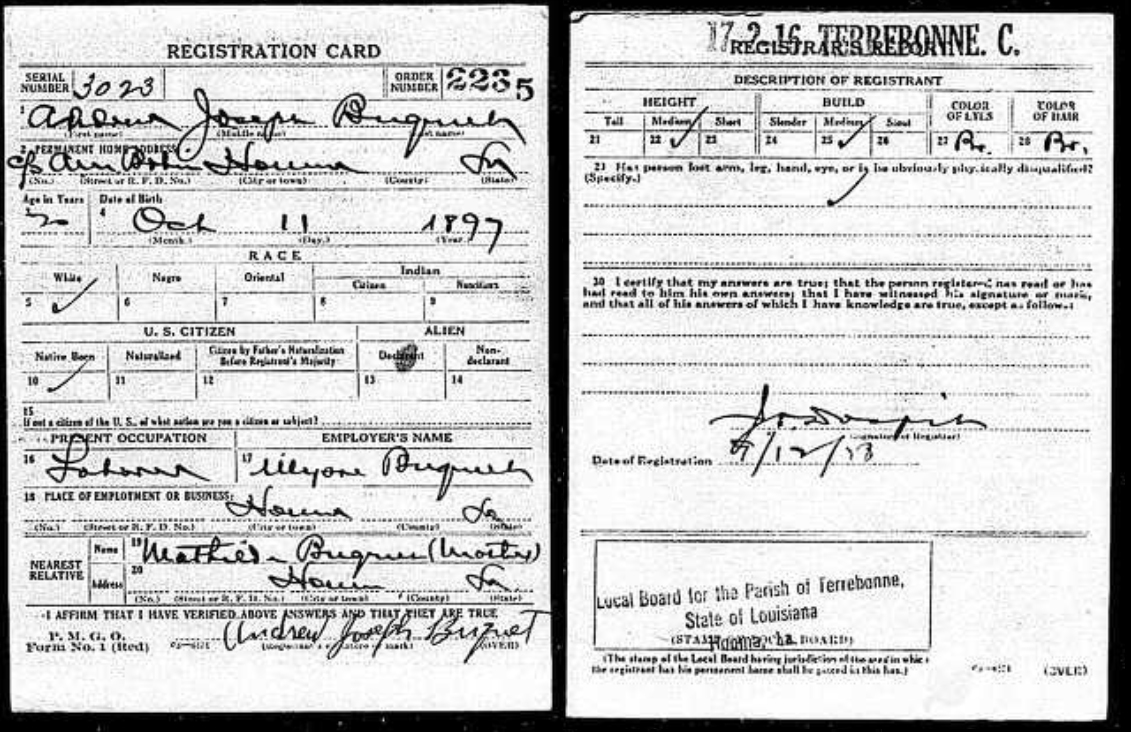 REGISTRATION CARD
SERIAL NUMBER 3023
ORDER NUMBER 2235
1 Andrew Joseph Buquet
(First name) (Middle name) (Last name)
2 PERMANENT HOME ADDRESS:
Houma La
(No.) (Street or R. F. D. No.) (City or town) (County) (State)
Age in Years Date of Birth
3 20 4 Oct 11 1897
(Month.) (Day.) (Year.)
RACE
White Negro Oriental Indian
Citizen Noncitizen
5 ✓ 6 7 8 9
U. S. CITIZEN ALIEN
Native Born Naturalized Citizen by Father's Naturalization Before Registrant's Majority Declarant Non-declarant
10 ✓ 11 12 13 14
15
If not a citizen of the U. S., of what nation are you a citizen or subject?
PRESENT OCCUPATION EMPLOYER'S NAME
16 Laborer 17 Buquet
18 PLACE OF EMPLOYMENT OR BUSINESS:
Houma La
(No.) (Street or R. F. D. No.) (City or town) (County) (State)
NEAREST RELATIVE
Name 19 Buquet (Mother)
Address 20 Houma La
(No.) (Street or R. F. D. No.) (City or town) (County) (State)
I AFFIRM THAT I HAVE VERIFIED ABOVE ANSWERS AND THAT THEY ARE TRUE
P. M. G. O.
Form No. 1 (Red) Andrew Joseph Buquet
(Registrant's signature or mark) (OVER)
17-2-16 TERREBONNE. C.
REGISTRAR'S REPORT
DESCRIPTION OF REGISTRANT
HEIGHT BUILD COLOR OF EYES COLOR OF HAIR
Tall Medium Short Slender Medium Stout
21 22 ✓ 23 24 25 ✓ 26 27 Br. 28 Br.
29 Has person lost arm, leg, hand, eye, or is he obviously physically disqualified?
(Specify.)
30 I certify that my answers are true; that the person registered has read or has
had read to him his own answers; that I have witnessed his signature or mark,
and that all of his answers of which I have knowledge are true, except as follows:
(Signature of Registrar)
Date of Registration 9/12/18
Local Board for the Parish of Terrebonne,
State of Louisiana
Houma, La.
(STAMP OF LOCAL BOARD)
(The stamp of the Local Board having jurisdiction of the area in which
the registrant has his permanent home shall be placed in this box.)
(OVER)